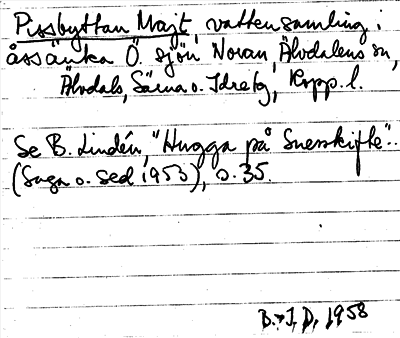 Pissbyttan Majt, vattensamling i
åssänka Ö. sjön Novan, Älvdalens sn,
Älvdals, Särna o. Idre tg, Kopp. l.
Se B. Lindén, "Hugga på Snesskifte"..
(Saga o. sed 1953), s. 35.
B. J. D. 1958